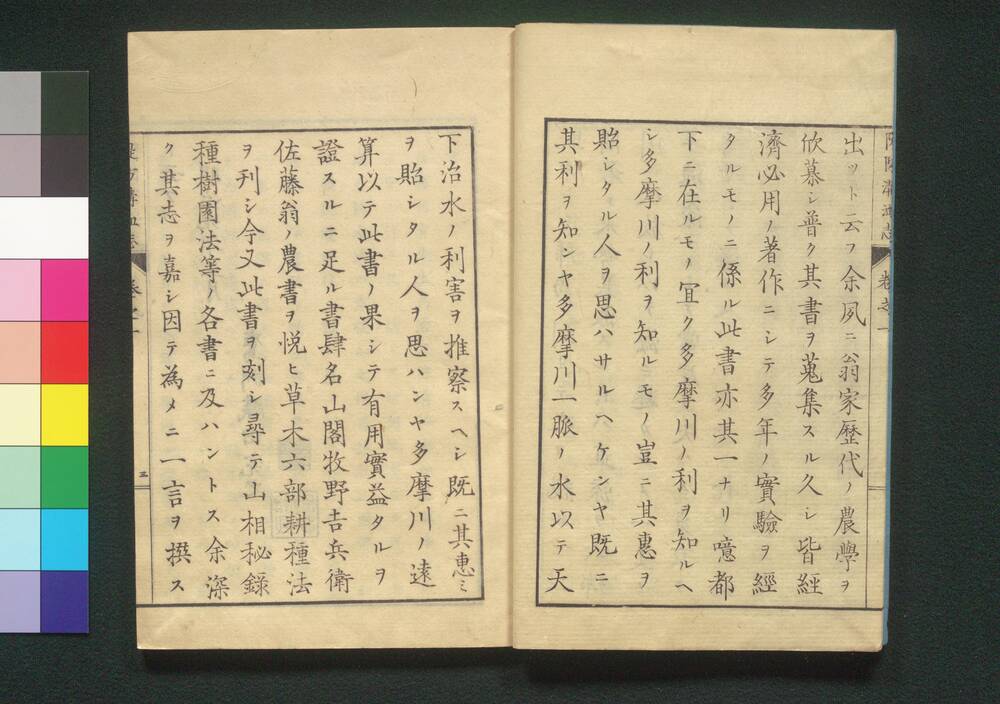 出ット云フ余夙ニ翁家歴代ノ農學ヲ
欣慕シ普ク其書ヲ蒐集スル久シ皆経
濟必用ノ著作ニシテ多年ノ實驗ヲ經
タルモノニ係ル此書亦其一ナリ噫都
下ニ在ルモノ宜ク多摩川ノ利ヲ知ルヘ
シ多摩川ノ利ヲ知ルモノ豈ニ其惠ヲ
貽シタル人ヲ思ハサルヘケンヤ既ニ
其利ヲ知ンヤ多摩川一脈ノ水以テ天
卷之一
下治水ノ利害ヲ推察スヘシ既ニ其惠ミ
ヲ貽シタル人ヲ思ハンヤ多摩川ノ遠
算以テ此書ノ果シテ有用實益タルヲ
證スルニ足ル書肆名山閣牧野吉兵衛
佐藤翁ノ農書ヲ悦ヒ草木六部耕種法
ヲ刊シ今又此書ヲ刻シ尋テ山相秘録
種樹園法等ノ各書ニ及ハントス余深
ク其志ヲ嘉シ因テ為メニ一言ヲ撰ス
三